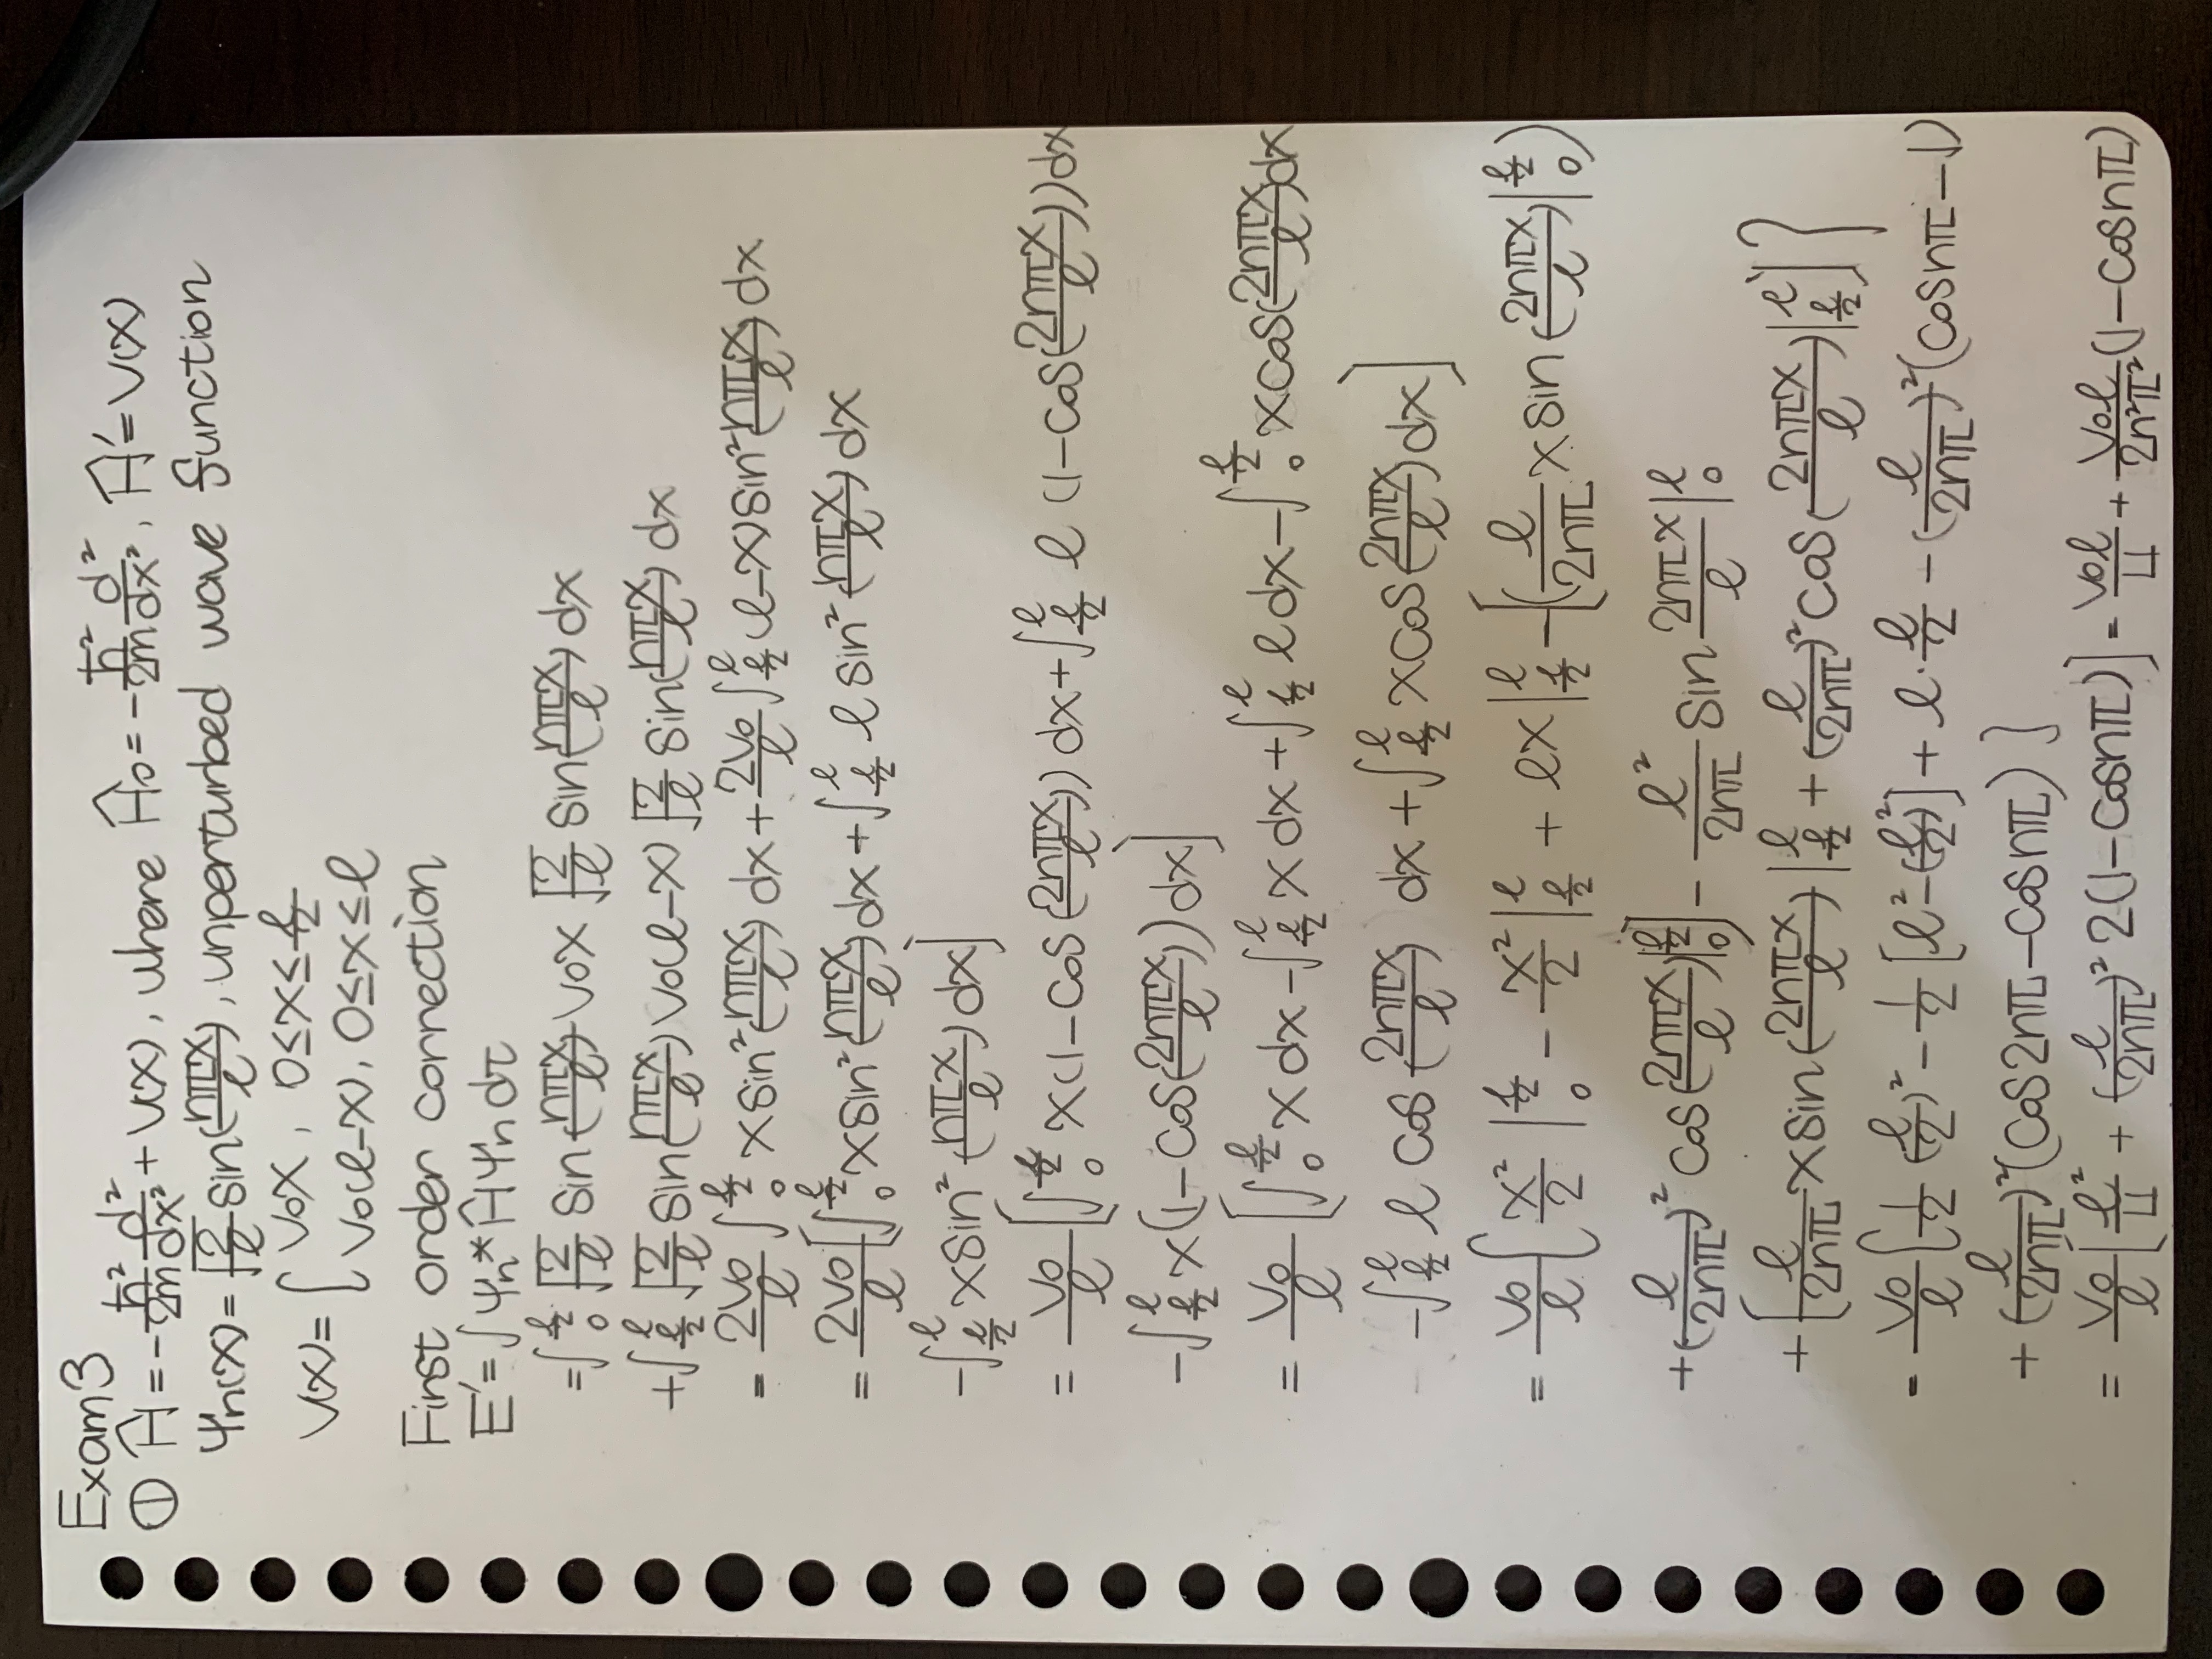 Exam 3
① Ĥ = -ħ²/2m d²/dx² + V(x), where Ĥ₀ = -ħ²/2m d²/dx², Ĥ' = V(x)
Ψn(x) = √(2/ℓ) sin(nπx/ℓ), unperturbed wave function
V(x) = { V₀x, 0≤x≤ℓ/2
V₀(ℓ-x), 0≤x≤ℓ
First order correction
E' = ∫Ψn* Ĥ Ψn dτ
= ∫₀^(ℓ/2) √(2/ℓ) sin(nπx/ℓ) V₀x √(2/ℓ) sin(nπx/ℓ) dx
+ ∫_(ℓ/2)^ℓ √(2/ℓ) sin(nπx/ℓ) V₀(ℓ-x) √(2/ℓ) sin(nπx/ℓ) dx
= 2V₀/ℓ ∫₀^(ℓ/2) x sin²(nπx/ℓ) dx + 2V₀/ℓ ∫_(ℓ/2)^ℓ (ℓ-x) sin²(nπx/ℓ) dx
= 2V₀/ℓ [∫₀^(ℓ/2) x sin²(nπx/ℓ) dx + ∫_(ℓ/2)^ℓ ℓ sin²(nπx/ℓ) dx
- ∫_(ℓ/2)^ℓ x sin²(nπx/ℓ) dx]
= V₀/ℓ [∫₀^(ℓ/2) x(1-cos(2nπx/ℓ)) dx + ∫_(ℓ/2)^ℓ ℓ (1-cos(2nπx/ℓ)) dx
- ∫_(ℓ/2)^ℓ x(1-cos(2nπx/ℓ)) dx]
= V₀/ℓ [∫₀^(ℓ/2) x dx - ∫_(ℓ/2)^ℓ x dx + ∫_(ℓ/2)^ℓ ℓ dx - ∫₀^(ℓ/2) x cos(2nπx/ℓ) dx
- ∫_(ℓ/2)^ℓ ℓ cos(2nπx/ℓ) dx + ∫_(ℓ/2)^ℓ x cos(2nπx/ℓ) dx]
= V₀/ℓ { x²/2 |₀^(ℓ/2) - x²/2 |_(ℓ/2)^ℓ + ℓx |_(ℓ/2)^ℓ - [(ℓ/2nπ x sin(2nπx/ℓ) |₀^(ℓ/2))
+ (ℓ/2nπ)² cos(2nπx/ℓ) |₀^(ℓ/2)] - ℓ²/2nπ sin 2nπx/ℓ |₀^ℓ
+ [ℓ/2nπ x sin(2nπx/ℓ) |_(ℓ/2)^ℓ + (ℓ/2nπ)² cos(2nπx/ℓ) |_(ℓ/2)^ℓ] }
= V₀/ℓ { 1/2 (ℓ/2)² - 1/2 [ℓ² - (ℓ/2)²] + ℓ·ℓ/2 - (ℓ/2nπ)² (cos nπ - 1)
+ (ℓ/2nπ)² (cos 2nπ - cos nπ) }
= V₀/ℓ [ℓ²/4 + (ℓ/2nπ)² 2(1-cos nπ)] = V₀ℓ/4 + V₀ℓ/2n²π² (1-cos nπ)